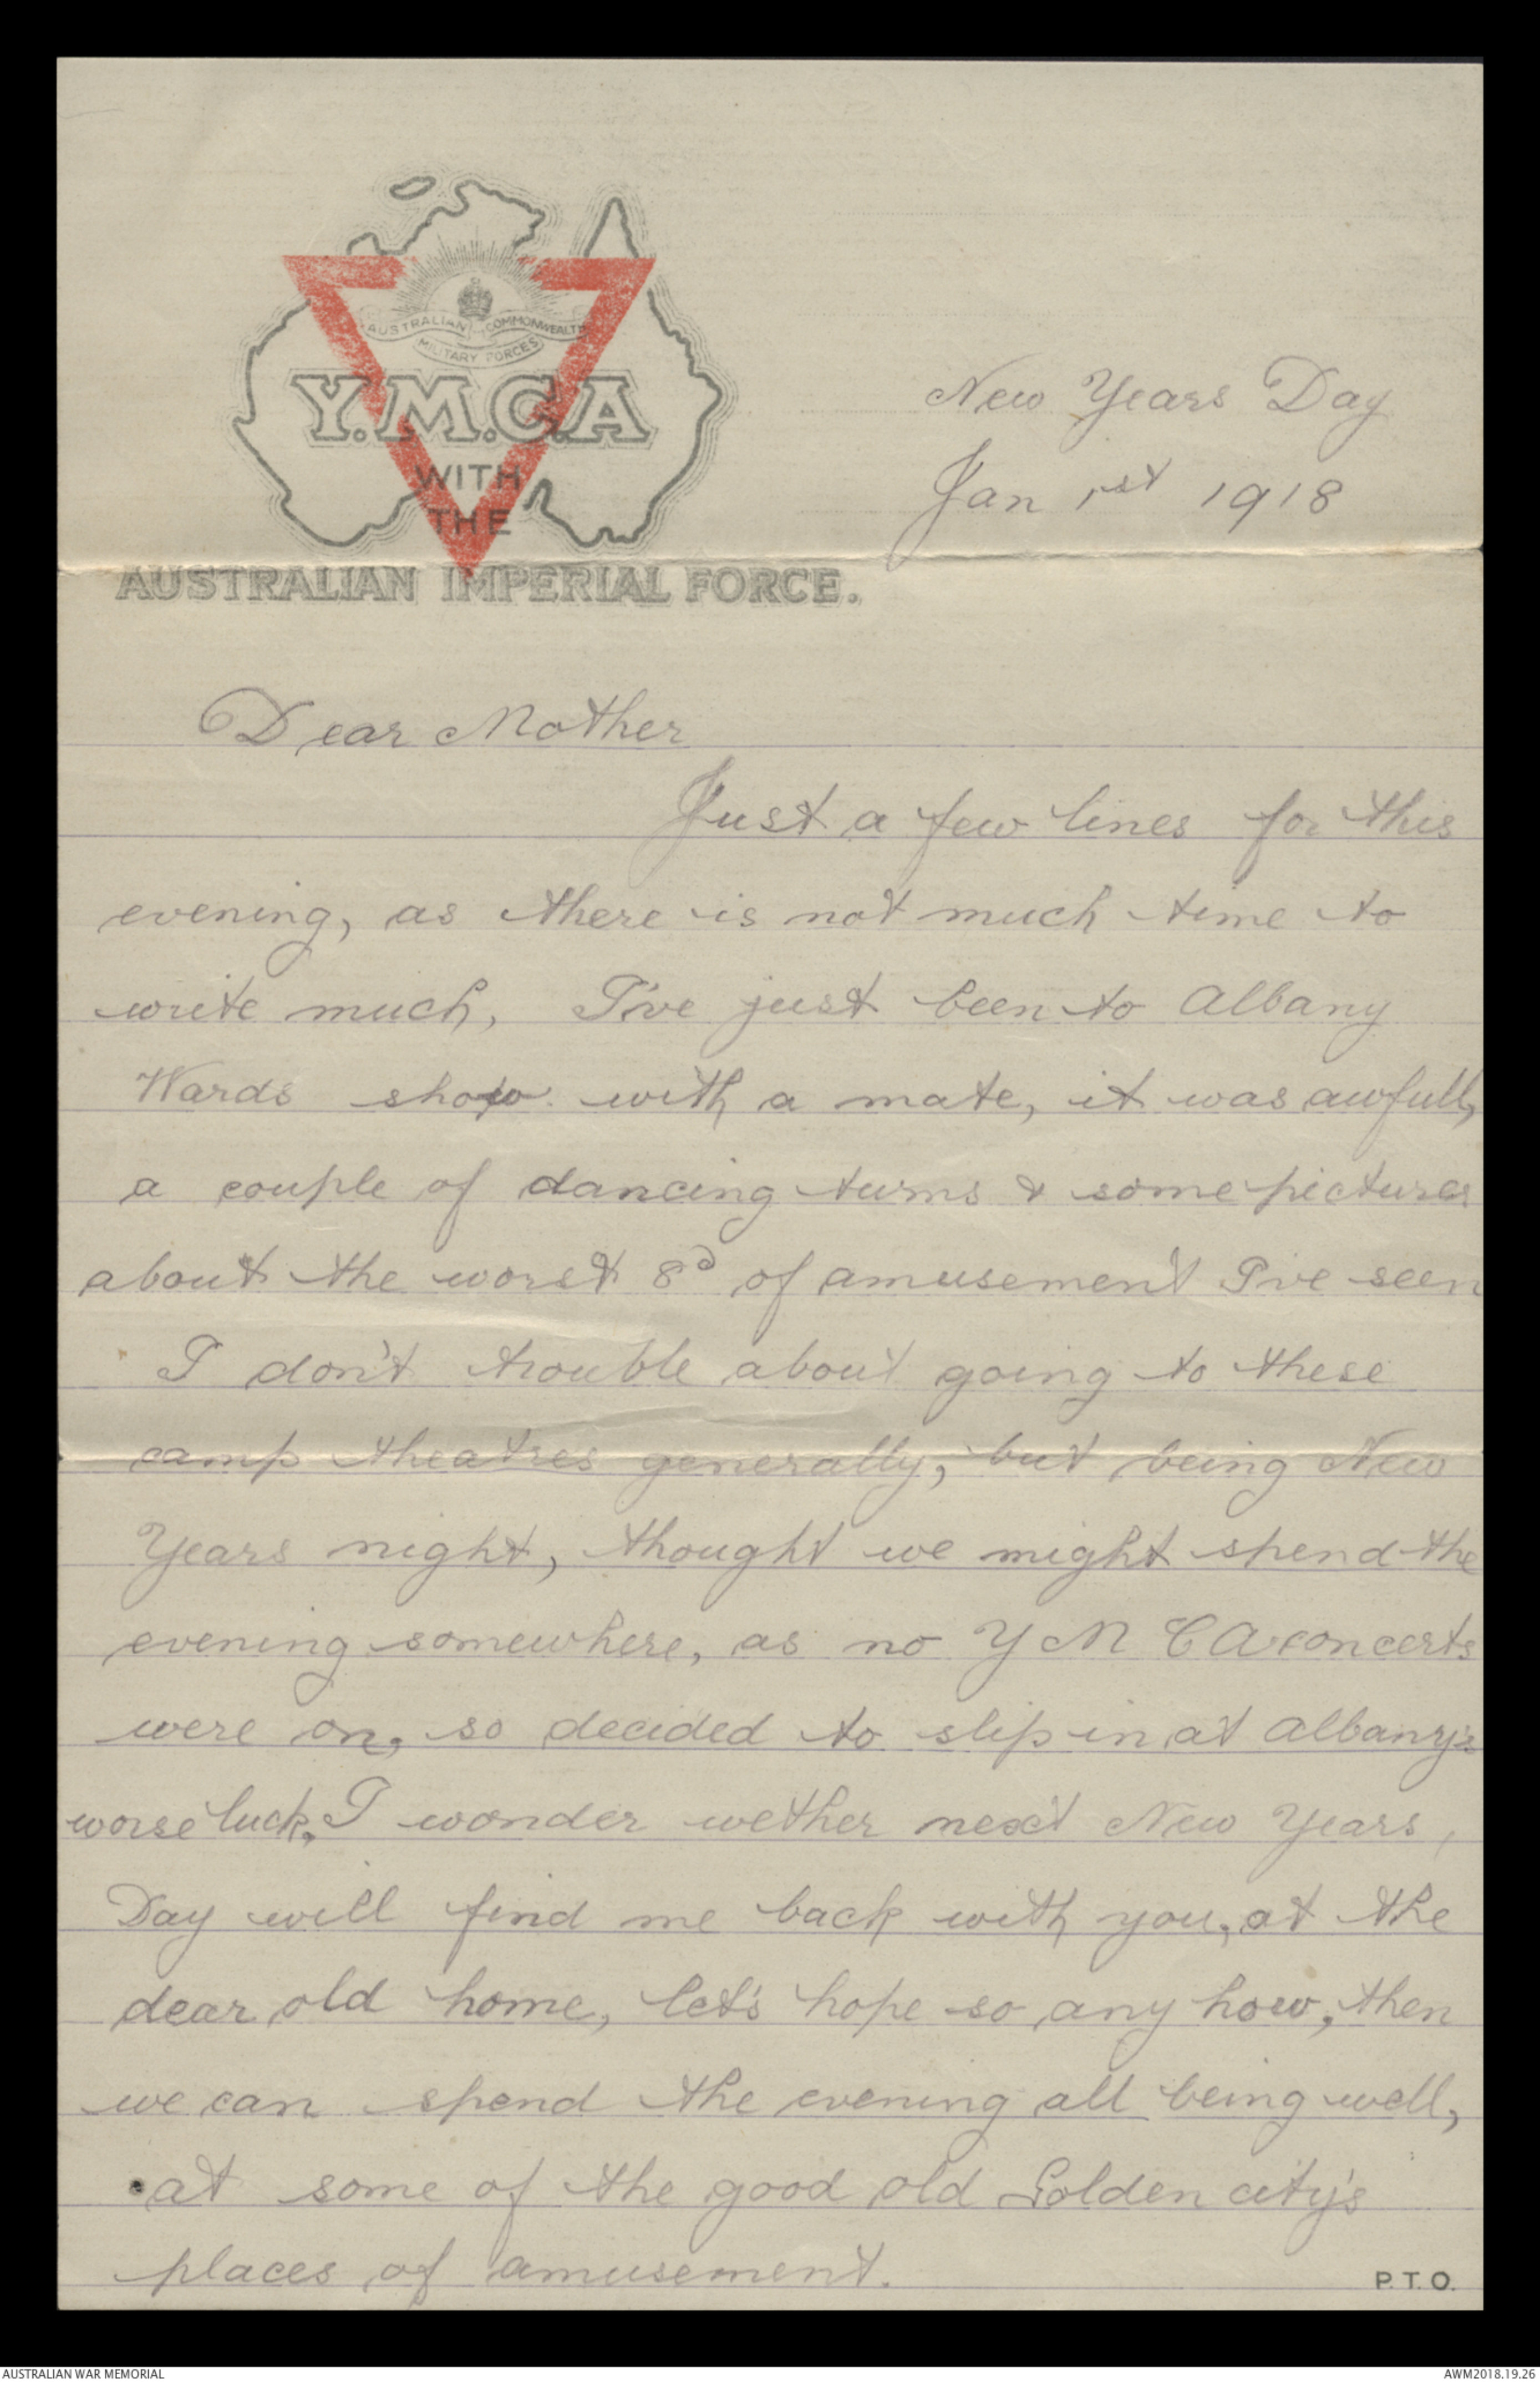 AUSTRALIAN COMMONWEALTH
MILITARY FORCES
Y.M.C.A
WITH
THE
AUSTRALIAN IMPERIAL FORCE.
New Years Day
Jan 1st 1918
Dear Mother
Just a few lines for this
evening, as there is not much time to
write much, I've just been to Albany
Wards show. with a mate, it was awfull,
a couple of dancing turns & some pictures
about the worst 8d of amusement I've seen
I don't trouble about going to these
camp theatres generally, but being New
Years night, thought we might spend the
evening somewhere, as no Y M C A concerts
were on, so decided to slip in at Albany's
worse luck, I wonder wether next New Years,
Day will find me back with you, at the
dear old home, let's hope so any how, then
we can spend the evening all being well,
at some of the good old Golden city's
places of amusement.
P.T.O.
AUSTRALIAN WAR MEMORIAL
AWM2018.19.26